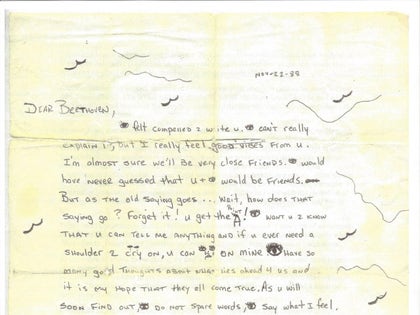 NOV-22-88
DEAR BEETHOVEN,
👁 felt compelled 2 write u. 👁 can't really
explain it, but I really feel good vibes from u.
I'm almost sure we'll be very close friends. 👁 would
have never guessed that u + 👁 would be friends.
But as the old saying goes... Wait, how does that
saying go? Forget it! u get the !! 👁 want u 2 know
THAT u can tell me anything and if u ever need a
shoulder 2 cry on, u can 👁 on mine 👁 have so
many good thoughts about what lies ahead 4 us and
it is my hope that they all come true. As u will
soon find out, 👁 do not spare words, 👁 say what I feel,